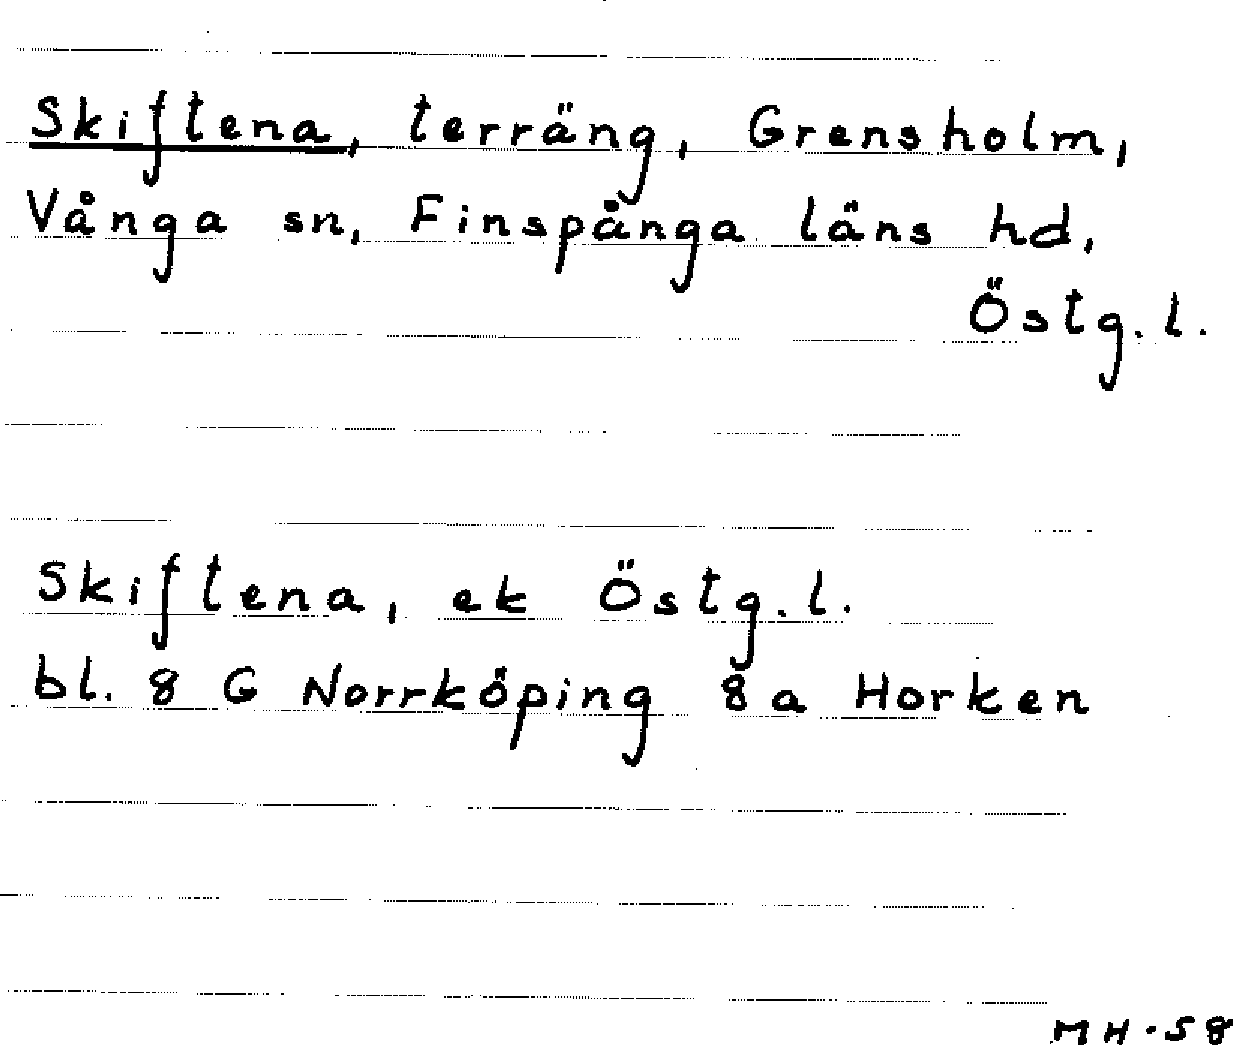 Skiftena, terräng, Grensholm,
Vånga sn, Finspånga läns hd,
Östg.l.
Skiftena, ek Östg.l.
bl. 8 G Norrköping 8 a Horken
MH-58